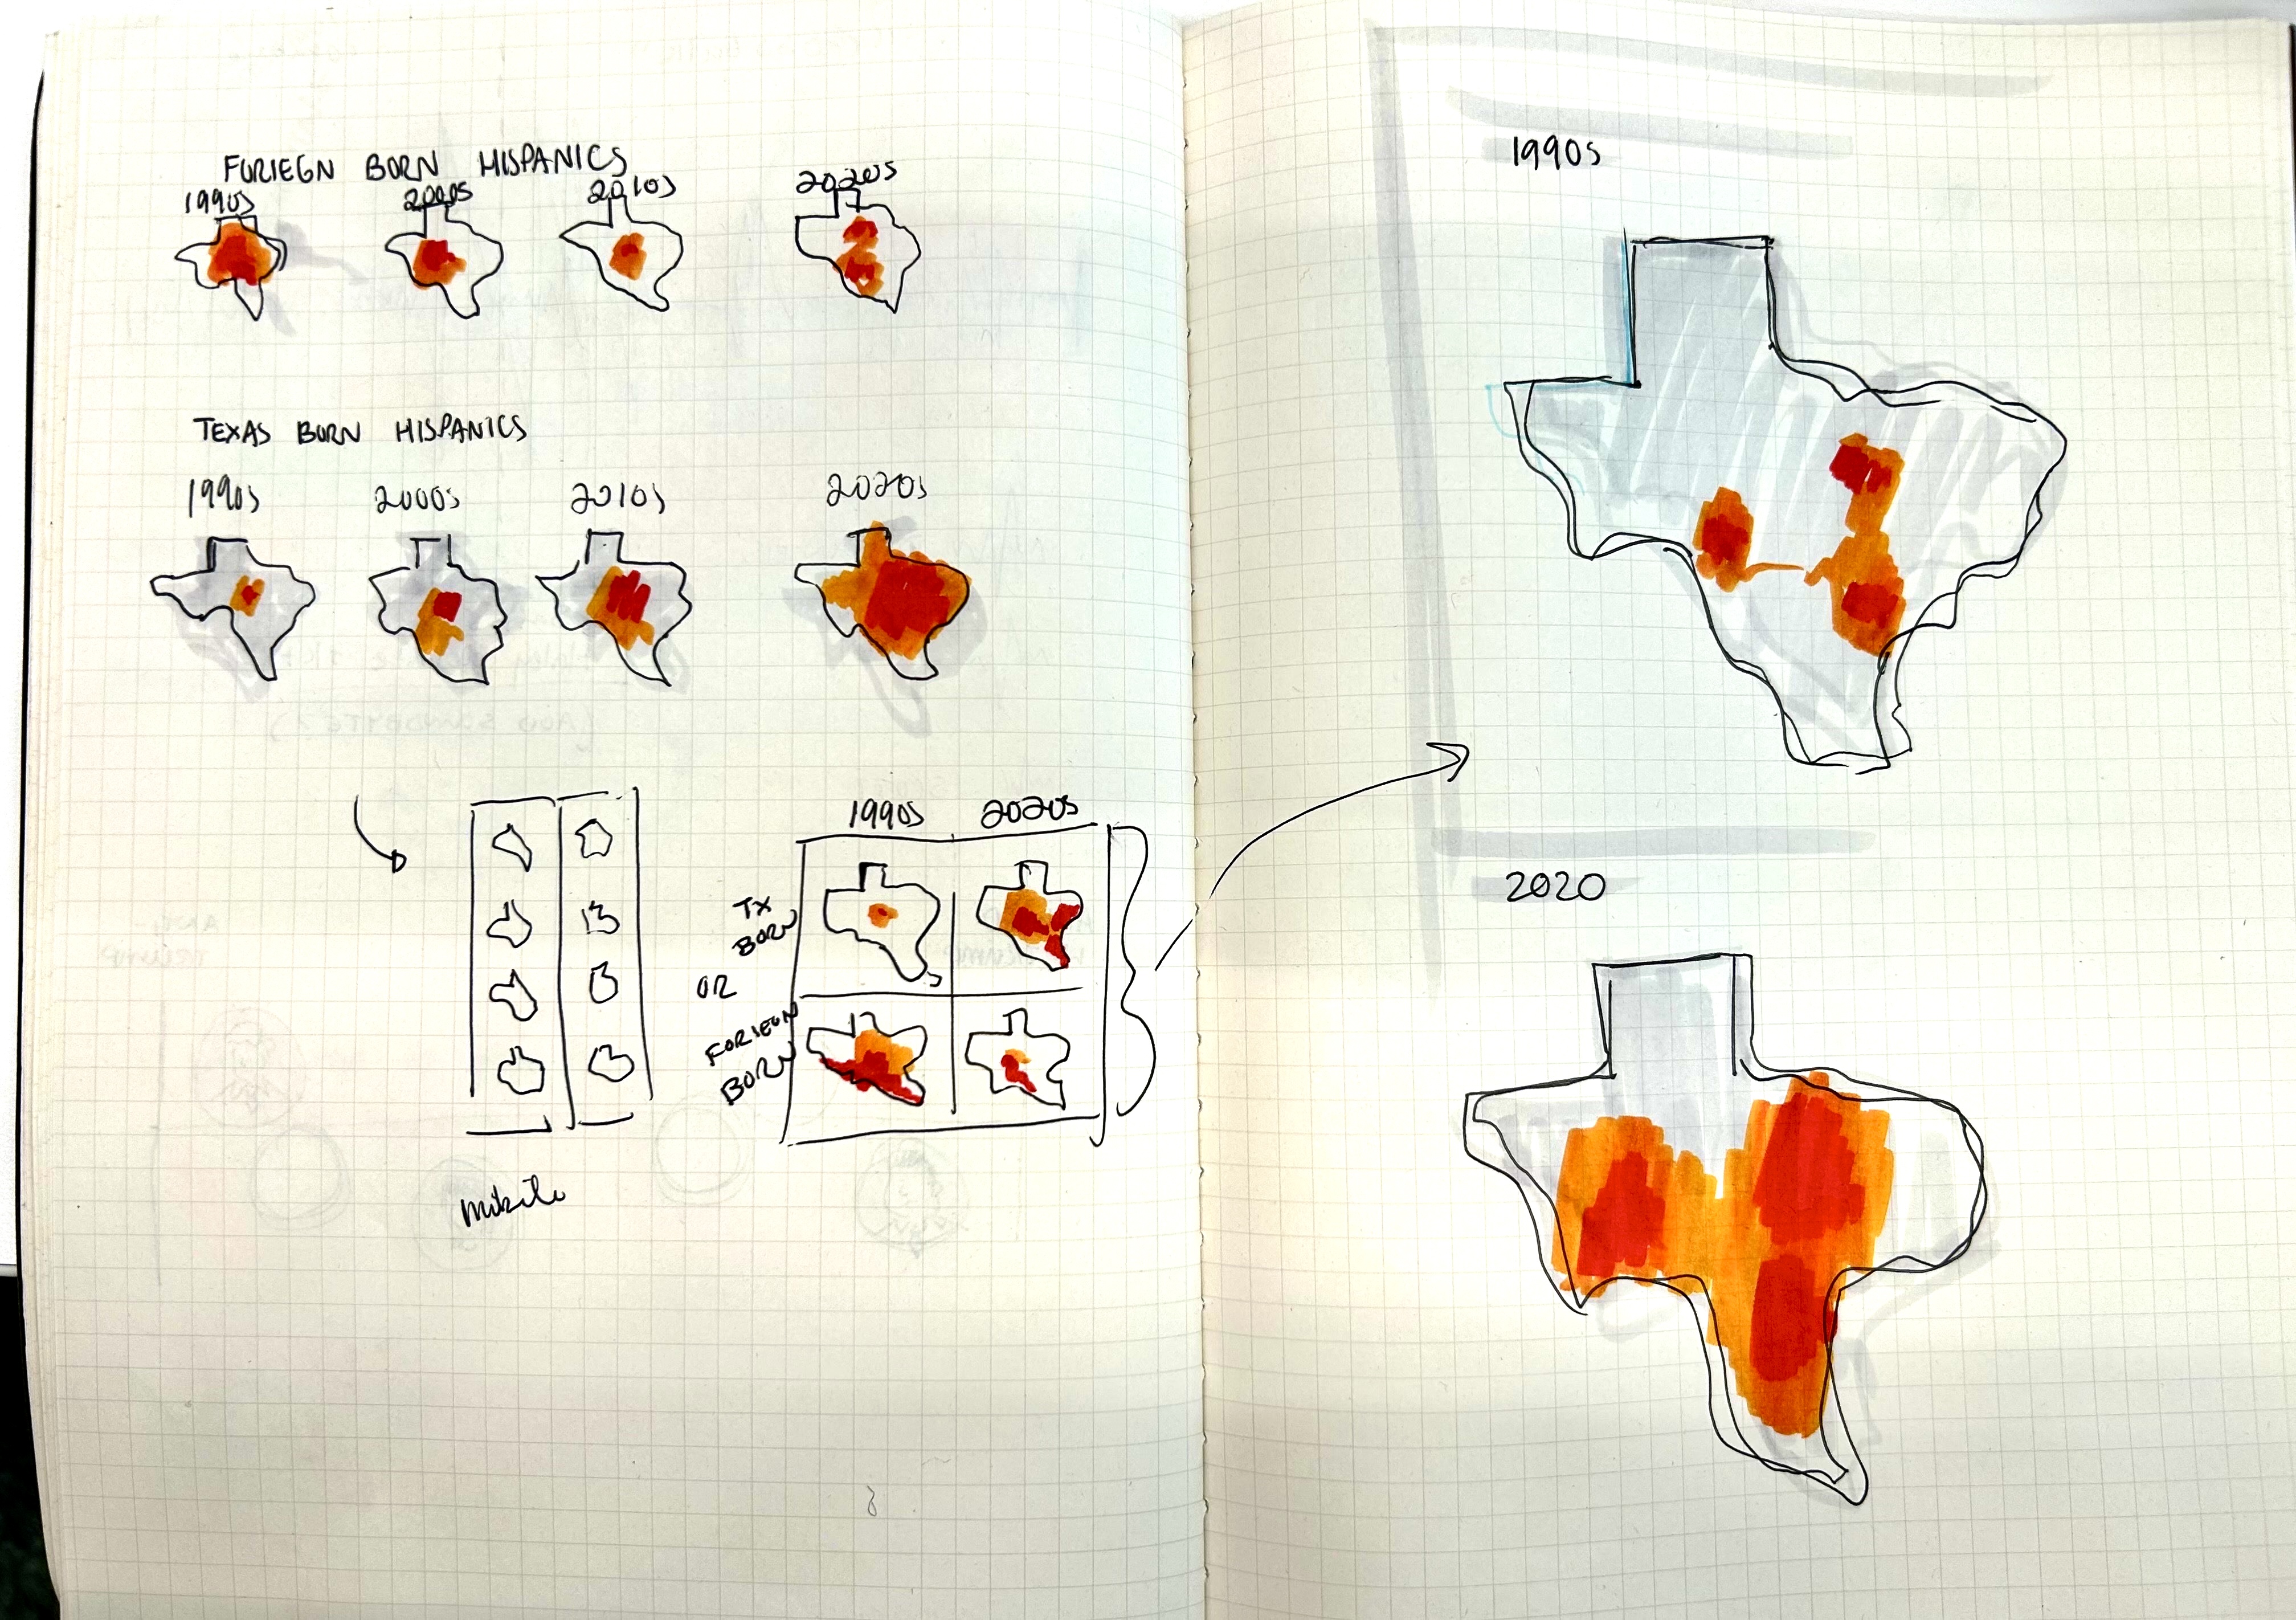 FORIEGN BORN HISPANICS
1990s
2000s
2010s
2020s
TEXAS BORN HISPANICS
1990s
2000s
2010s
2020s
1990s
2020s
TX
BORN
OR
FORIEGN
BORN
1990s
2020